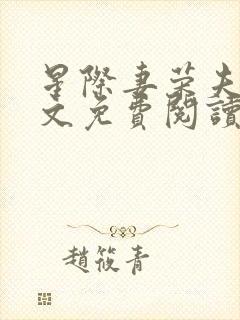 星際妻荣夫
文免費閱讀
趙筱青